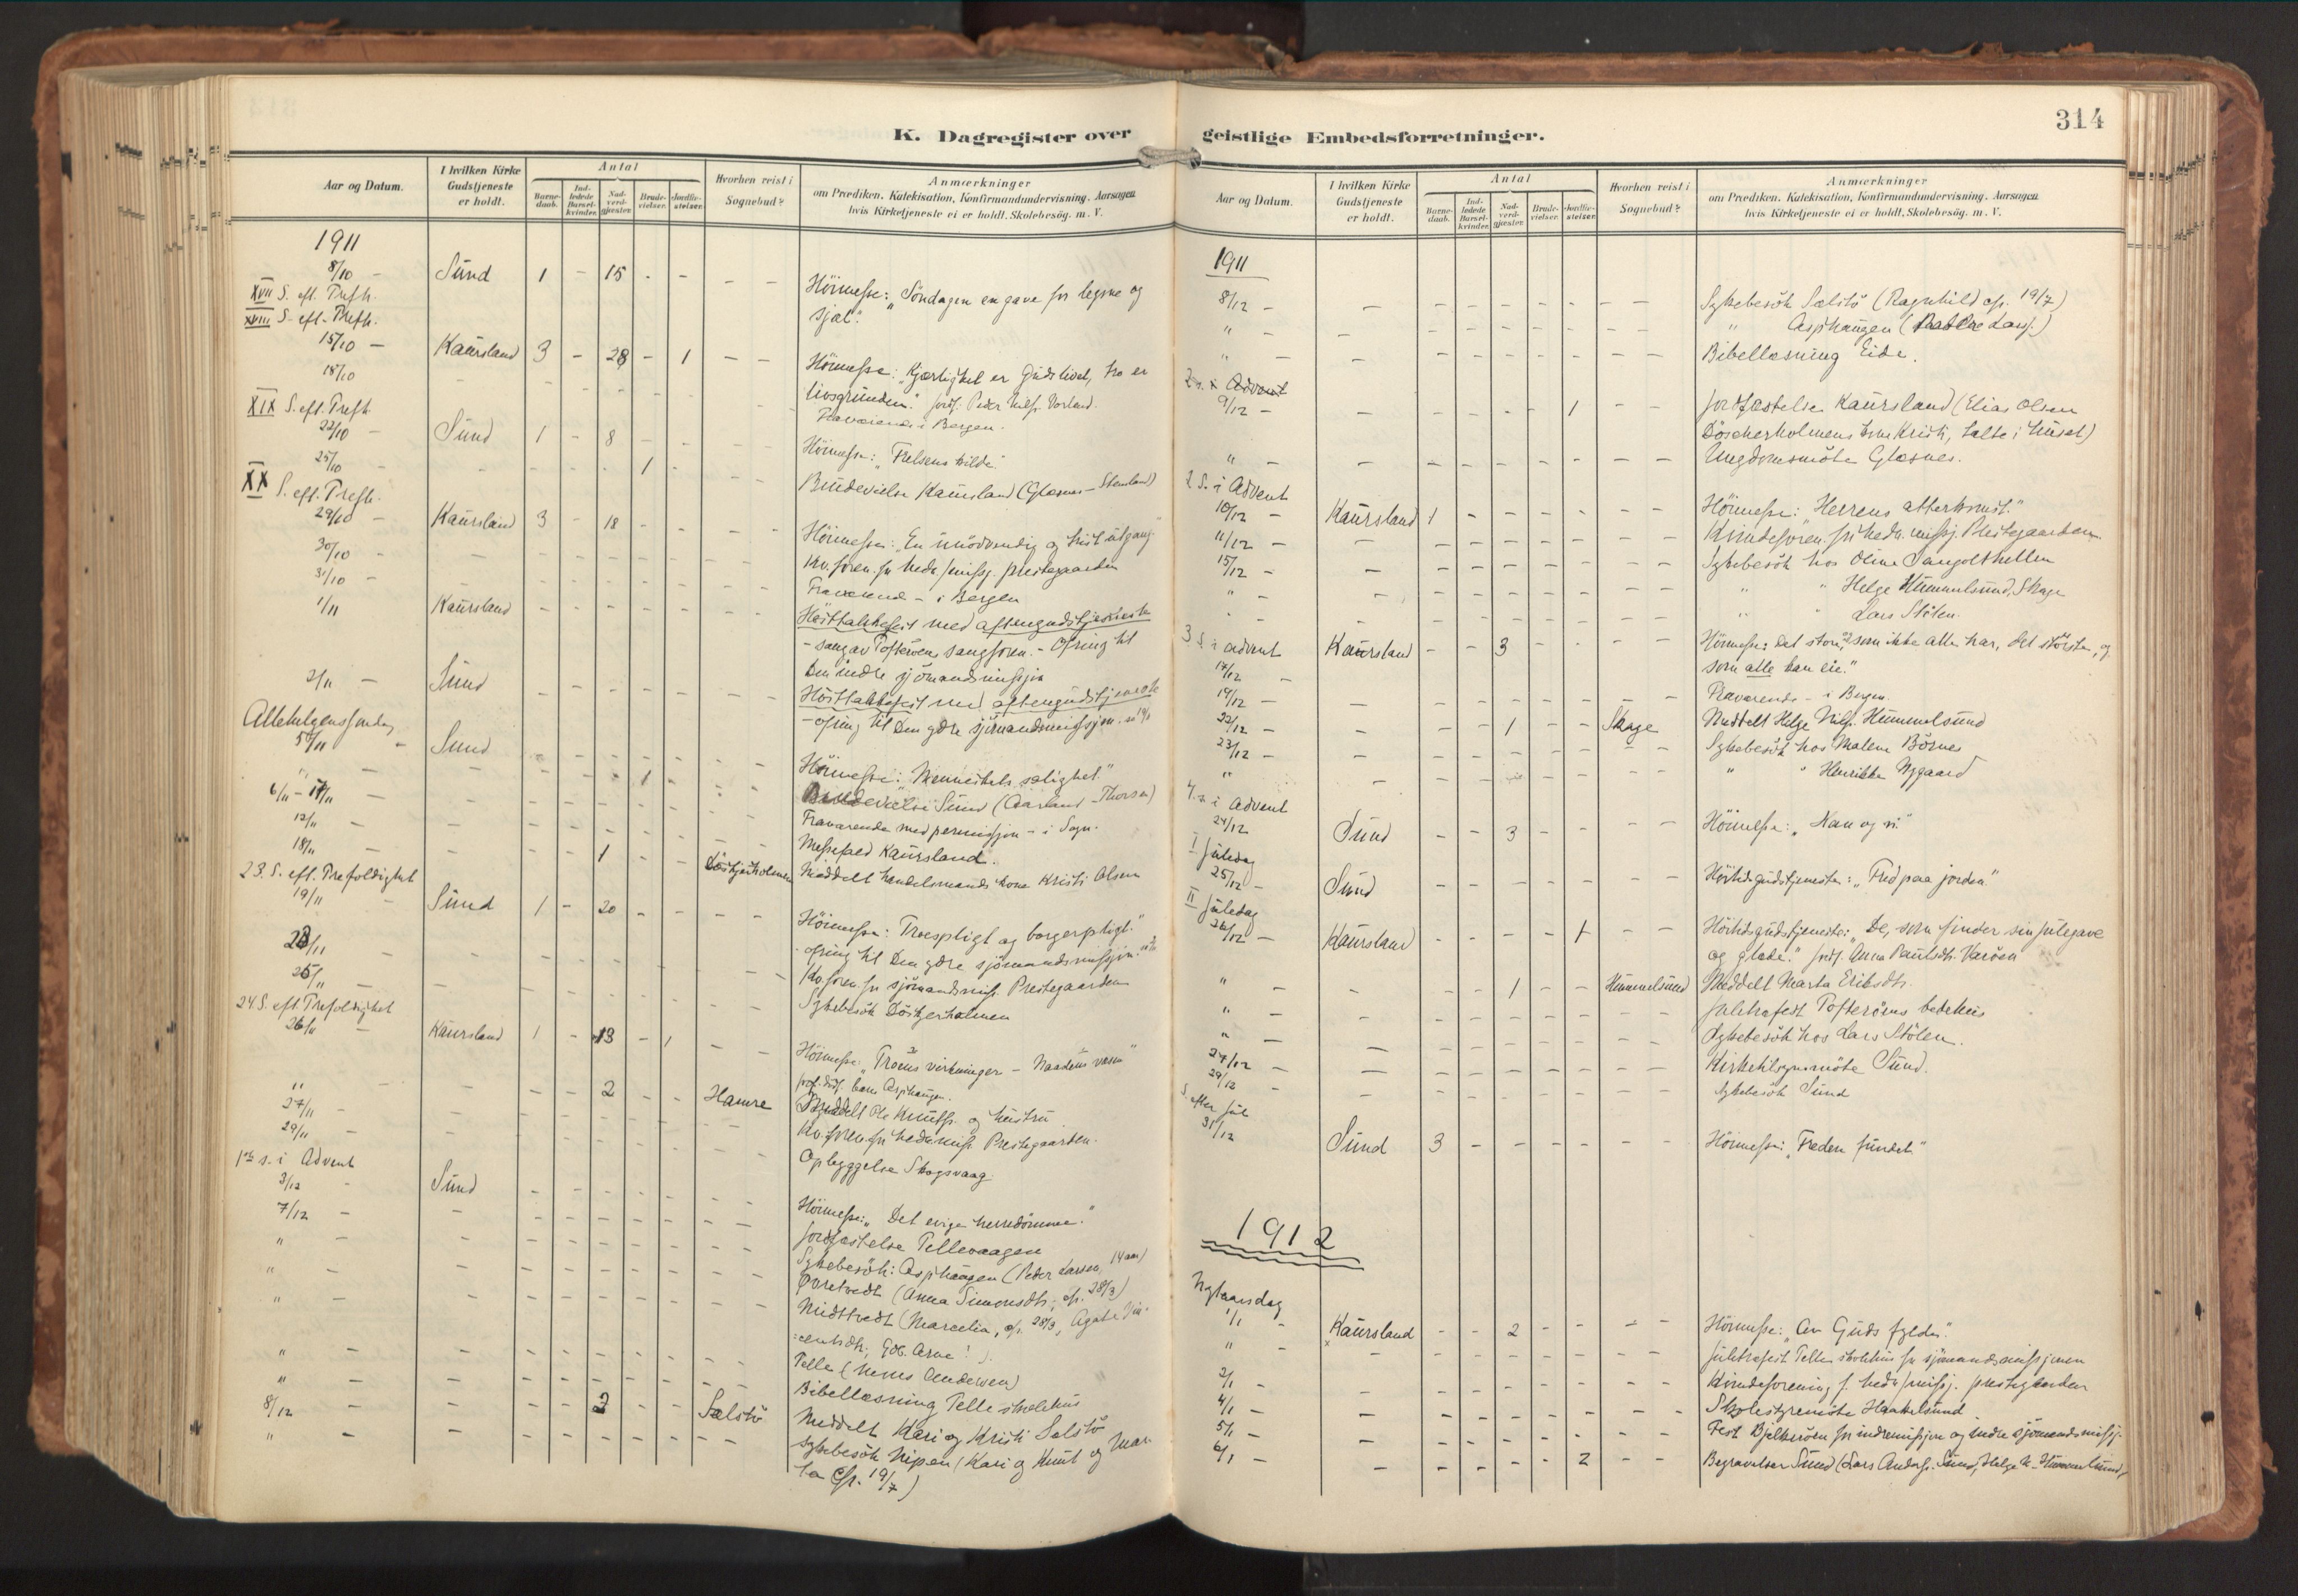 K. Dagregister over
Aar og Datum. I hvilken Kirke Gudstjeneste er holdt. Antal Barne-daab. Ind-ledede Barsel-kvinder. Nad-verd-gjester. Brude-vielser. Jordfæ-stelser. Hvorhen reist i Sognebud? Anmærkninger om Prædiken, Katekisation, Konfirmandundervisning, Aarsagen hvis Kirketjeneste ei er holdt, Skolebesøg, m. V.
1911
8/10 - Sund 1 - 15 - - - -
XVII S. eft. Trefh. Höimesse: "Söndagen en gave for legeme og
XVIII S. eft. Trefh. sjæl."
15/10 - Kaursland 3 - 28 - 1 - - Höimesse: "Kjærlighet er Guds livet, tro er
18/10 livsgrunden." Jordf. Peder Nilss. Vorland.
Fraværende i Bergen.
XIX S. eft. Trefh.
22/10 - Sund 1 - 8 - - - - Höimesse: "Frelsens kilde."
25/10 - - - - - 1 - - - Brudevielse Kaursland (Glesnes - Stenland)
XX S. eft. Trefh.
29/10 - Kaursland 3 - 18 - - - - Höimesse: "En unödvendig og trist utgang."
30/10 - Kv. foren. for hedn. missj. prestegaarden
31/10 - Fraværende - i Bergen
1/11 Kaursland - - - - - - Hösttakkefest med aftengudstjeneste
- sang av Tofteröens sangforen. - Ofring til
Den indre sjömandsmissjon
2/11 - Sund - - - - - Hösttakkefest med aftengudstjeneste
- ofring til Den ydre sjömandsmissjon.
Allehelgenssöndag
5/11 - Sund - - - - - Höimesse: "Menneskets salighet."
" - 1 Brudevielse Sund (Aarland - Thorsen)
6/11 - 17/11 Fraværende med permissjon - i Sogn.
12/11 - Messefald Kaursland.
18/11 - 1 - - Döskjerholmen Meddelt handelsmands kone Kristi Olsen
23. S. eft. Trefoldighet
19/11 - Sund 1 - 20 - - - - Höimesse: "Troespligt og borgerpligt."
- ofring til Den ydre sjömandsmissjon.
23/11 - Kv. foren. for sjömandsmiss. Prestegaarden
25/11 - Sykebesök Döskjerholmen
24 S. eft. Trefoldighet
26/11 - Kaursland 1 - 13 - 1 - - Höimesse: "Troens virkninger - Naadens væsen"
Jordf. barn Asphaugen.
" - 2 - - Hamre Meddelt Ole Knutss. og hustru
27/11 - Kv. foren. for hedn. miss. Prestegaarden.
29/11 - Opbyggelse Skogsvaag
1ste s. i Advent
3/12 - Sund - - - - - Höimesse: "Det evige herredömme."
7/12 - Jordfæstelse Tellevaagen
" - Sykebesök: Asphaugen (Peder Larsen, 14 aar)
" - Övretvedt (Anna Simonsdtr., cfr. 28/3)
" - Midttvedt (Marcelia, cfr. 28/3, Agate Vin-
centsdtr., Gdb. Arne!).
" - Telle (Mons Andersen)
" - Bibellæsning Telle skolehus
8/12 - 2 - - Sælstö Meddelt Kari og Kristi Selstö
" - Sykebesök Nipen (Kari og Knut og Mar-
ta cfr. 19/7)
geistlige Embedsforretninger.
314
Aar og Datum. I hvilken Kirke Gudstjeneste er holdt. Antal Barne-daab. Ind-ledede Barsel-kvinder. Nad-verd-gjester. Brude-vielser. Jordfæ-stelser. Hvorhen reist i Sognebud? Anmærkninger om Prædiken, Katekisation, Konfirmandundervisning, Aarsagen hvis Kirketjeneste ei er holdt, Skolebesøg, m. V.
1911
8/12 - - - - - - - - - Sykebesök Sælstö (Ragnhild cfr. 19/7)
" - " Asphaugen (Larss.)
" - Bibellæsning Eide.
2 s. i Advent
9/12 - - - - - - 1 - - Jordfæstelse Kaursland (Elias Olsen
Döscherholmens kone Kristi, talte i huset)
" - Ungdomsmöte Glæsnes.
2 S. i Advent
10/12 - Kaursland 1 - - - - - - Höimesse: "Herrens atterkomst."
11/12 - Kvindeforen. for hedn. missj. Prestegaarden.
15/12 - Sykebesök hos Oline Tangolthellen
" - " " Helge Hummelsund, Skage
" " Lars Stölen.
3 S. i advent Kaursland - - 3 - - - - Höimesse: "Det store, som ikke alle har, det största, og
17/12 - som alle kan eie."
19/12 - Fraværende - i Bergen.
22/12 - - - - 1 - - Skage Meddelt Helge Nilss. Hummelsund
23/12 - Sykebesök hos Malene Börnes
" " " Henrikke Nygaard
4. s. i Advent
24/12 Sund - - 3 - - - - Höimesse: "Han og vi."
I Juledag
25/12 - Sund - - - - - - Höitidsgudstjeneste: "Fred paa jorden."
II Juledag
26/12 - Kaursland - - - - 1 - - Höitidsgudstjeneste: "De, som finder sin julegave
og glæde." Jordf. Anna Paulsdtr. Varöen
" - - - 1 - - Hummelsund Meddelt Marta Eriksdtr.
" - Juletrefest Tofteröens bedehus
" - Sykebesök hos Lars Stölen.
27/12 - Kirketilsynsmöte Sund.
29/12 - Sykebesök Sund
S. efter jul
31/12 Sund 3 - - - - - - Höimesse: "Freden fundet."
1912
Nytaarsdag
1/1 - Kaursland - - 2 - - - - Höimesse: "Av Guds fylde."
" - Juletrefest Telle skolehus for sjömandsmissjonen
2/1 - Kvindeforening f. hedn. missj. prestegaarden
4/1 - Skolestyremöte Haakelsund
5/1 - Fest Bjelkeröen for indremissjon og indre sjömandsmissj.
6/1 - - - - - - 2 - - Begravelser Sund (Lars Anderss. Sund, Helge N. Hummelsund)